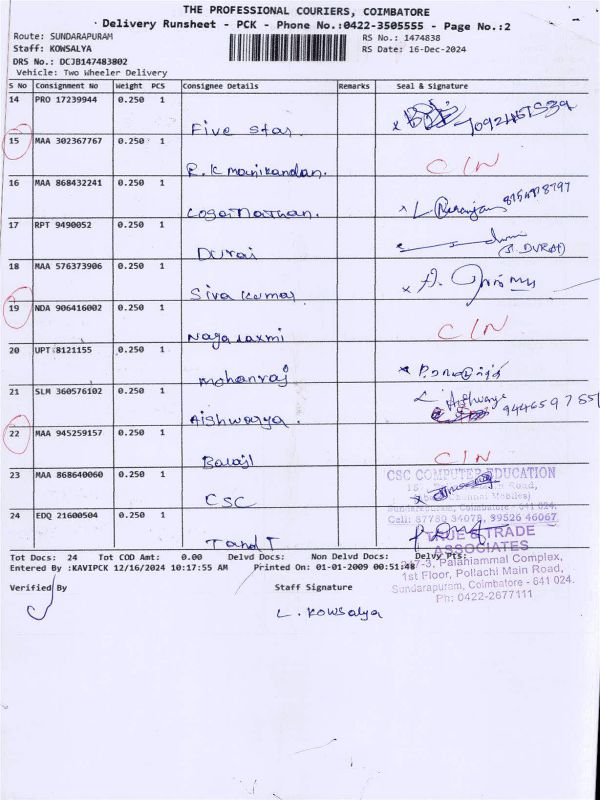 THE PROFESSIONAL COURIERS, COIMBATORE
Delivery Runsheet - PCK - Phone No.:0422-3505555 - Page No.:2
Route: SUNDARAPURAM RS No.: 1474838
Staff: KOWSALYA RS Date: 16-Dec-2024
DRS No.: DCJB147483802
Vehicle: Two Wheeler Delivery
S No Consignment No Weight PCS Consignee Details Remarks Seal & Signature
14 PRO 17239944 0.250 1
Five star.
15 MAA 302367767 0.250 1 C/N
R.K manikandan.
16 MAA 868432241 0.250 1
Loganathan.
17 RPT 9490052 0.250 1
Durai (S. DURAI)
18 MAA 576373906 0.250 1
Siva kumar
19 NDA 906416002 0.250 1 C/N
Naga Laxmi
20 UPT 8121155 0.250 1
mohanraj
21 SLM 360576102 0.250 1 L Aishwarya
Aishwarya.
22 MAA 945259157 0.250 1 C/N
Balaji
23 MAA 868640060 0.250 1 CSC COMPUTER EDUCATION
Road,
Mobiles)
Sundarapuram, Coimbatore - 641 024.
CSC
24 EDQ 21600504 0.250 1 Cell: 87780 34078, 99526 46067
T and T TRADE
ASSOCIATES
Tot Docs: 24 Tot COD Amt: 0.00 Delvd Docs: Non Delvd Docs: Delvy Pts:
Entered By :KAVIPCK 12/16/2024 10:17:55 AM Printed On: 01-01-2009 00:51:48
247-3, Palaniammal Complex,
1st Floor, Pollachi Main Road,
Sundarapuram, Coimbatore - 641 024.
Ph: 0422-2677111
Verified By Staff Signature
L. Kowsalya